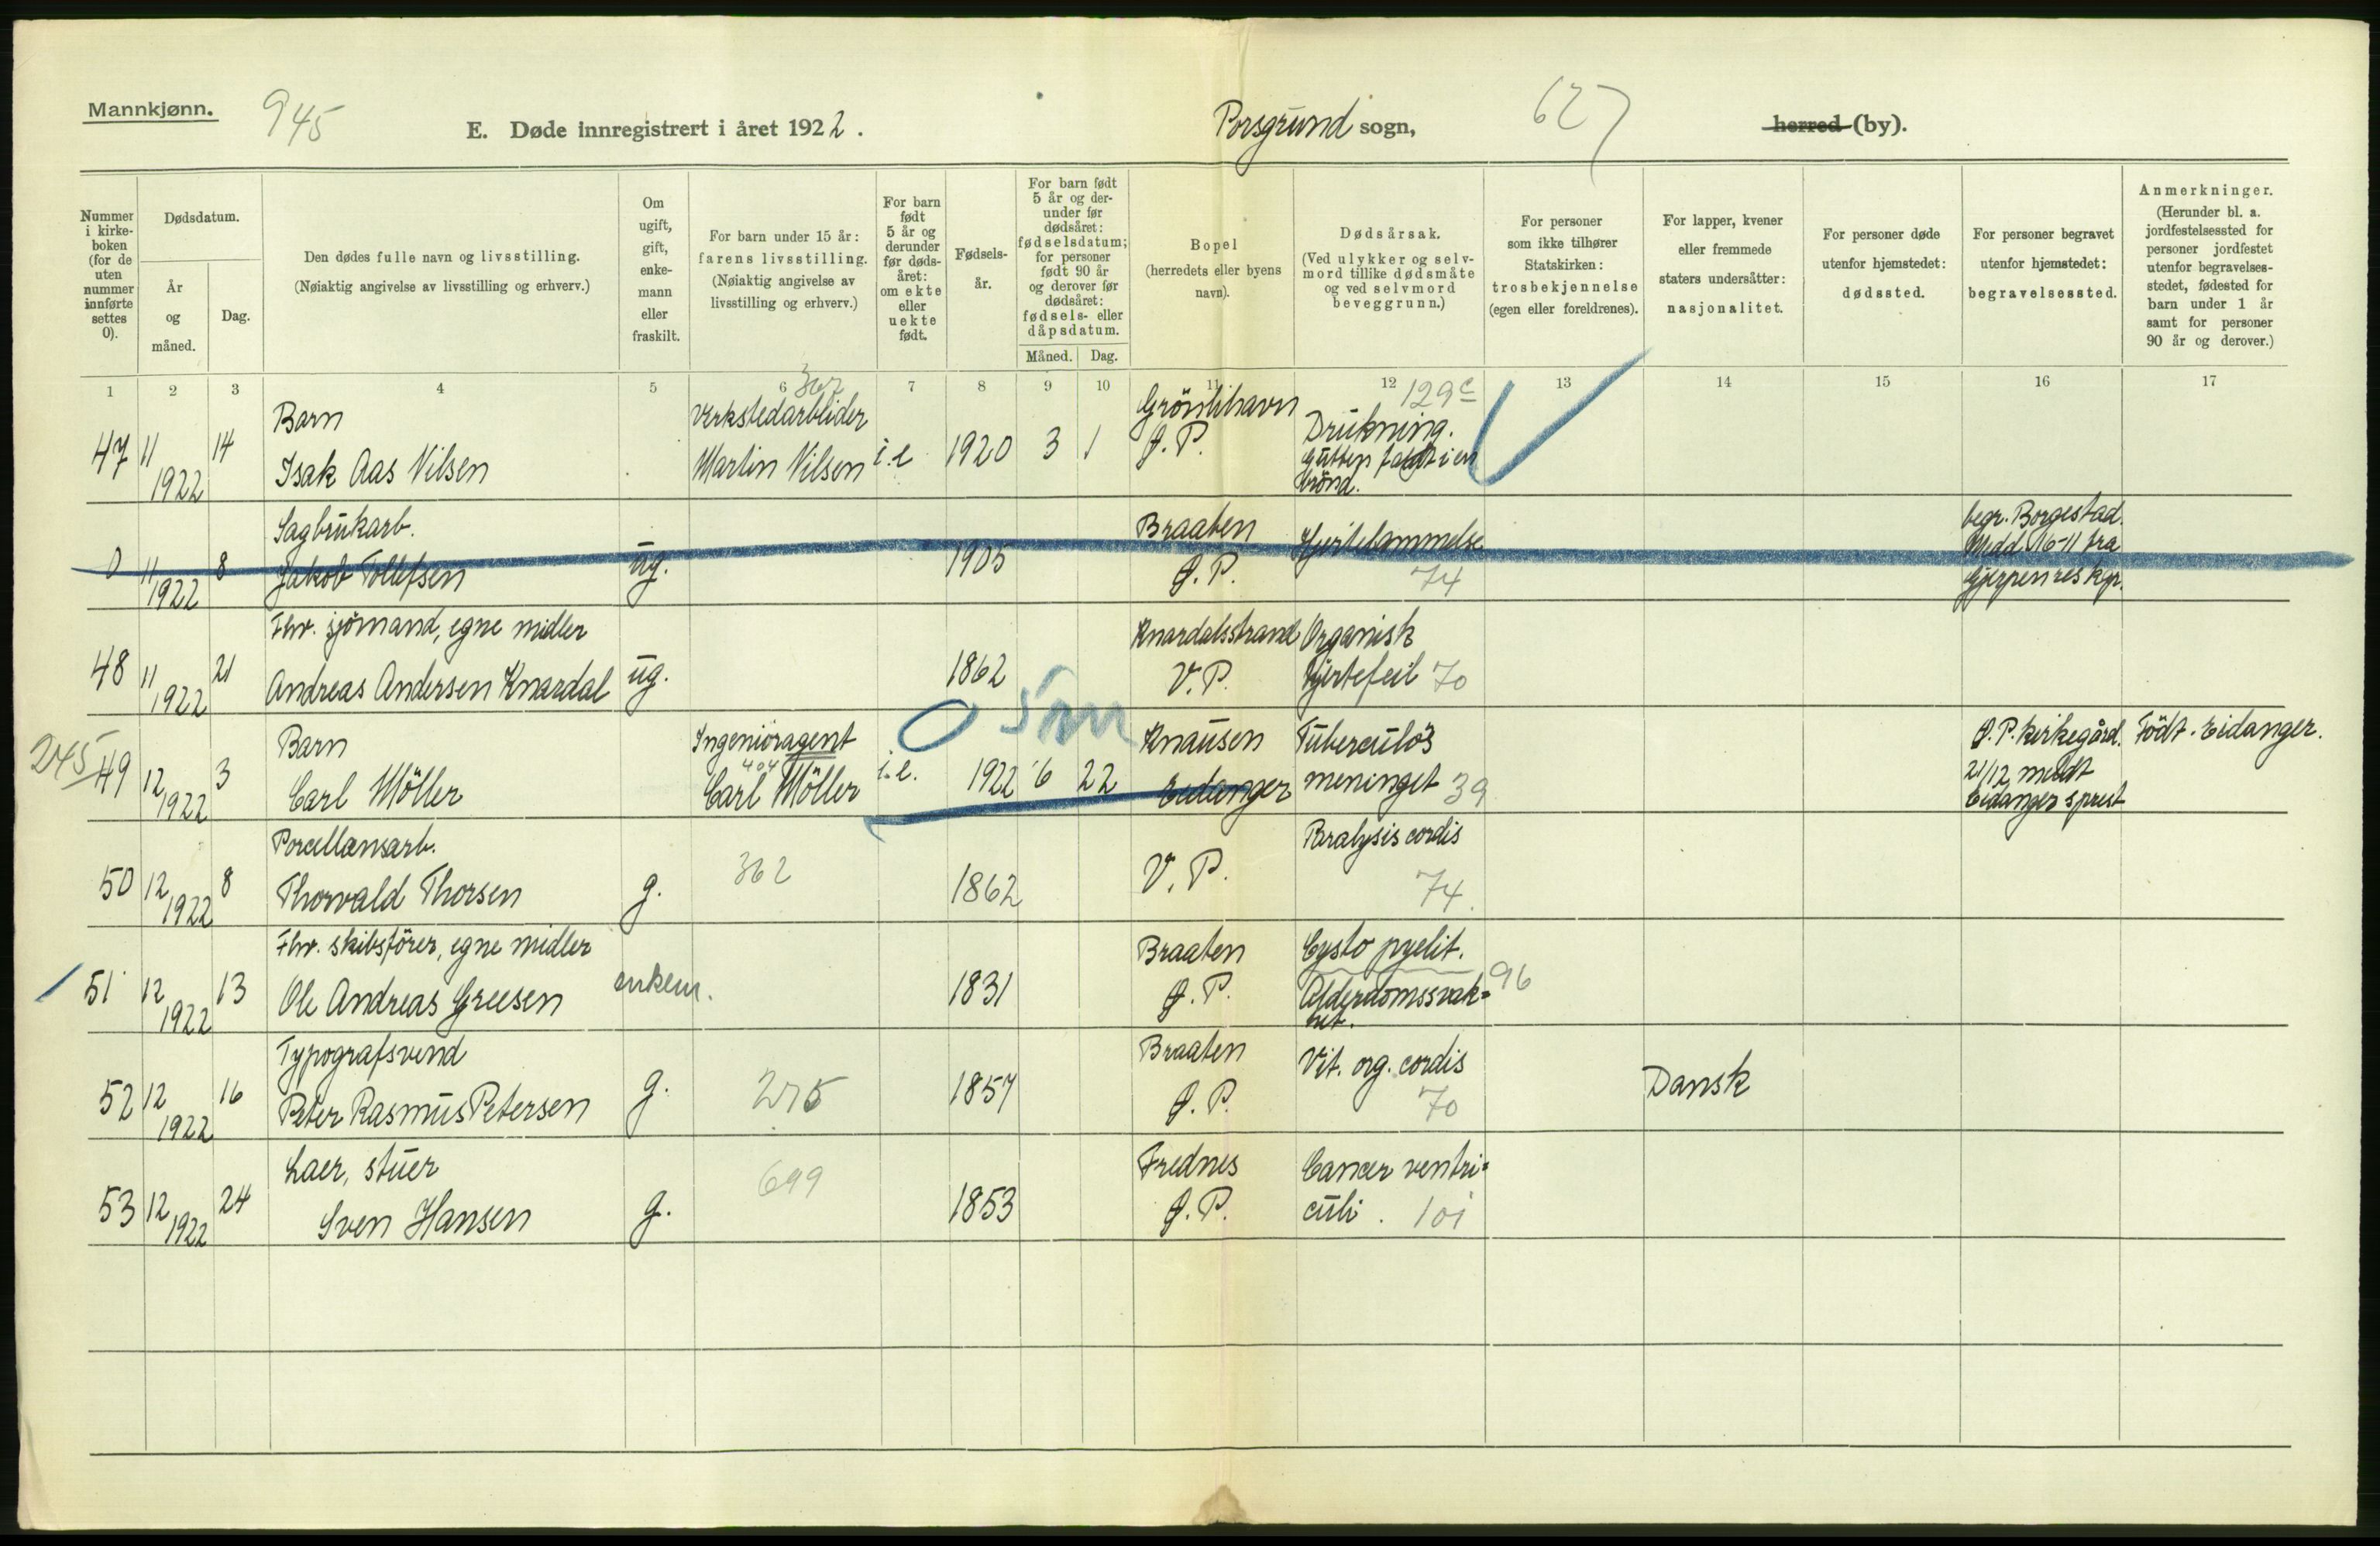 Mannkjønn.
945
E. Døde innregistrert i året 1922.
Porsgrund sogn,
627
herred (by).
Nummer i kirkeboken (for de uten nummer innførte settes 0).
Dødsdatum.
År og måned.
Dag.
Den dødes fulle navn og livsstilling.
(Nøiaktig angivelse av livsstilling og erhverv.)
Om ugift, gift, enkemann eller fraskilt.
For barn under 15 år: farens livsstilling.
(Nøiaktig angivelse av livsstilling og erhverv.)
For barn født 5 år og derunder før dødsåret: om ekte eller uekte født.
Fødselsår.
For barn født 5 år og derunder før dødsåret: fødselsdatum; for personer født 90 år og derover før dødsåret: fødsels- eller dåpsdatum.
Måned. Dag.
Bopel
(herredets eller byens navn).
Dødsårsak.
(Ved ulykker og selvmord tillike dødsmåte og ved selvmord beveggrunn.)
For personer som ikke tilhører Statskirken: trosbekjennelse (egen eller foreldrenes).
For lapper, kvener eller fremmede staters undersåtter: nasjonalitet.
For personer døde utenfor hjemstedet: dødssted.
For personer begravet utenfor hjemstedet: begravelsessted.
Anmerkninger.
(Herunder bl. a. jordfestelsessted for personer jordfestet utenfor begravelsesstedet, fødested for barn under 1 år samt for personer 90 år og derover.)
1 2 3 4 5 6 7 8 9 10 11 12 13 14 15 16 17
367
129c
Barn
Verkstedarbeider
Grönlihavn
Drukning.
47 11 1922 14 Isak Aas Nilsen
Martin Nilsen i.e 1920 3 1 Ø.P.
Gutten faldt i en
brönd.
Sagbrukarb.
Braaten
Hjertelammelse
begr. Borgestad.
0 11 1922 8 Jakob Tollefsen ug. 1905 Ø.P. 74
Medd. 16-11 fra
Gjerpen res kap.
Fhv. sjömand, egne midler
Knardalsstrand Organisk
48 11 1922 21 Andreas Andersen Knardal ug. 1862 V.P. Hjertefeil 70
245
Barn
Ingeniöragent
O
Knausen Tuberculös
Ø.P. kirkegård. Födt. Eidanger.
49 12 1922 3 Carl Möller
404
Carl Möller i.e. 1922 6 22 Eidanger meninget 39
21/12 meldt
Eidanger sprest
Porcellænsarb.
Paralysis cordis
50 12 1922 8 Thorvald Thorsen g. 362 1862 V.P. 74
Fhv. skibsförer, egne midler
Braaten Cysto pyelit.
51 12 1922 13 Ole Andreas Greesen enkem. 1831 Ø.P. Alderdomssvak= 96
het.
Typografsvend
Braaten Vit. org. cordis
52 12 1922 16 Peter Rasmus Petersen g. 275 1857 Ø.P. 70 Dansk
Laer, stuer
Frednes Cancer ventri=
53 12 1922 24 Sven Hansen g. 699 1853 Ø.P. culi. 101